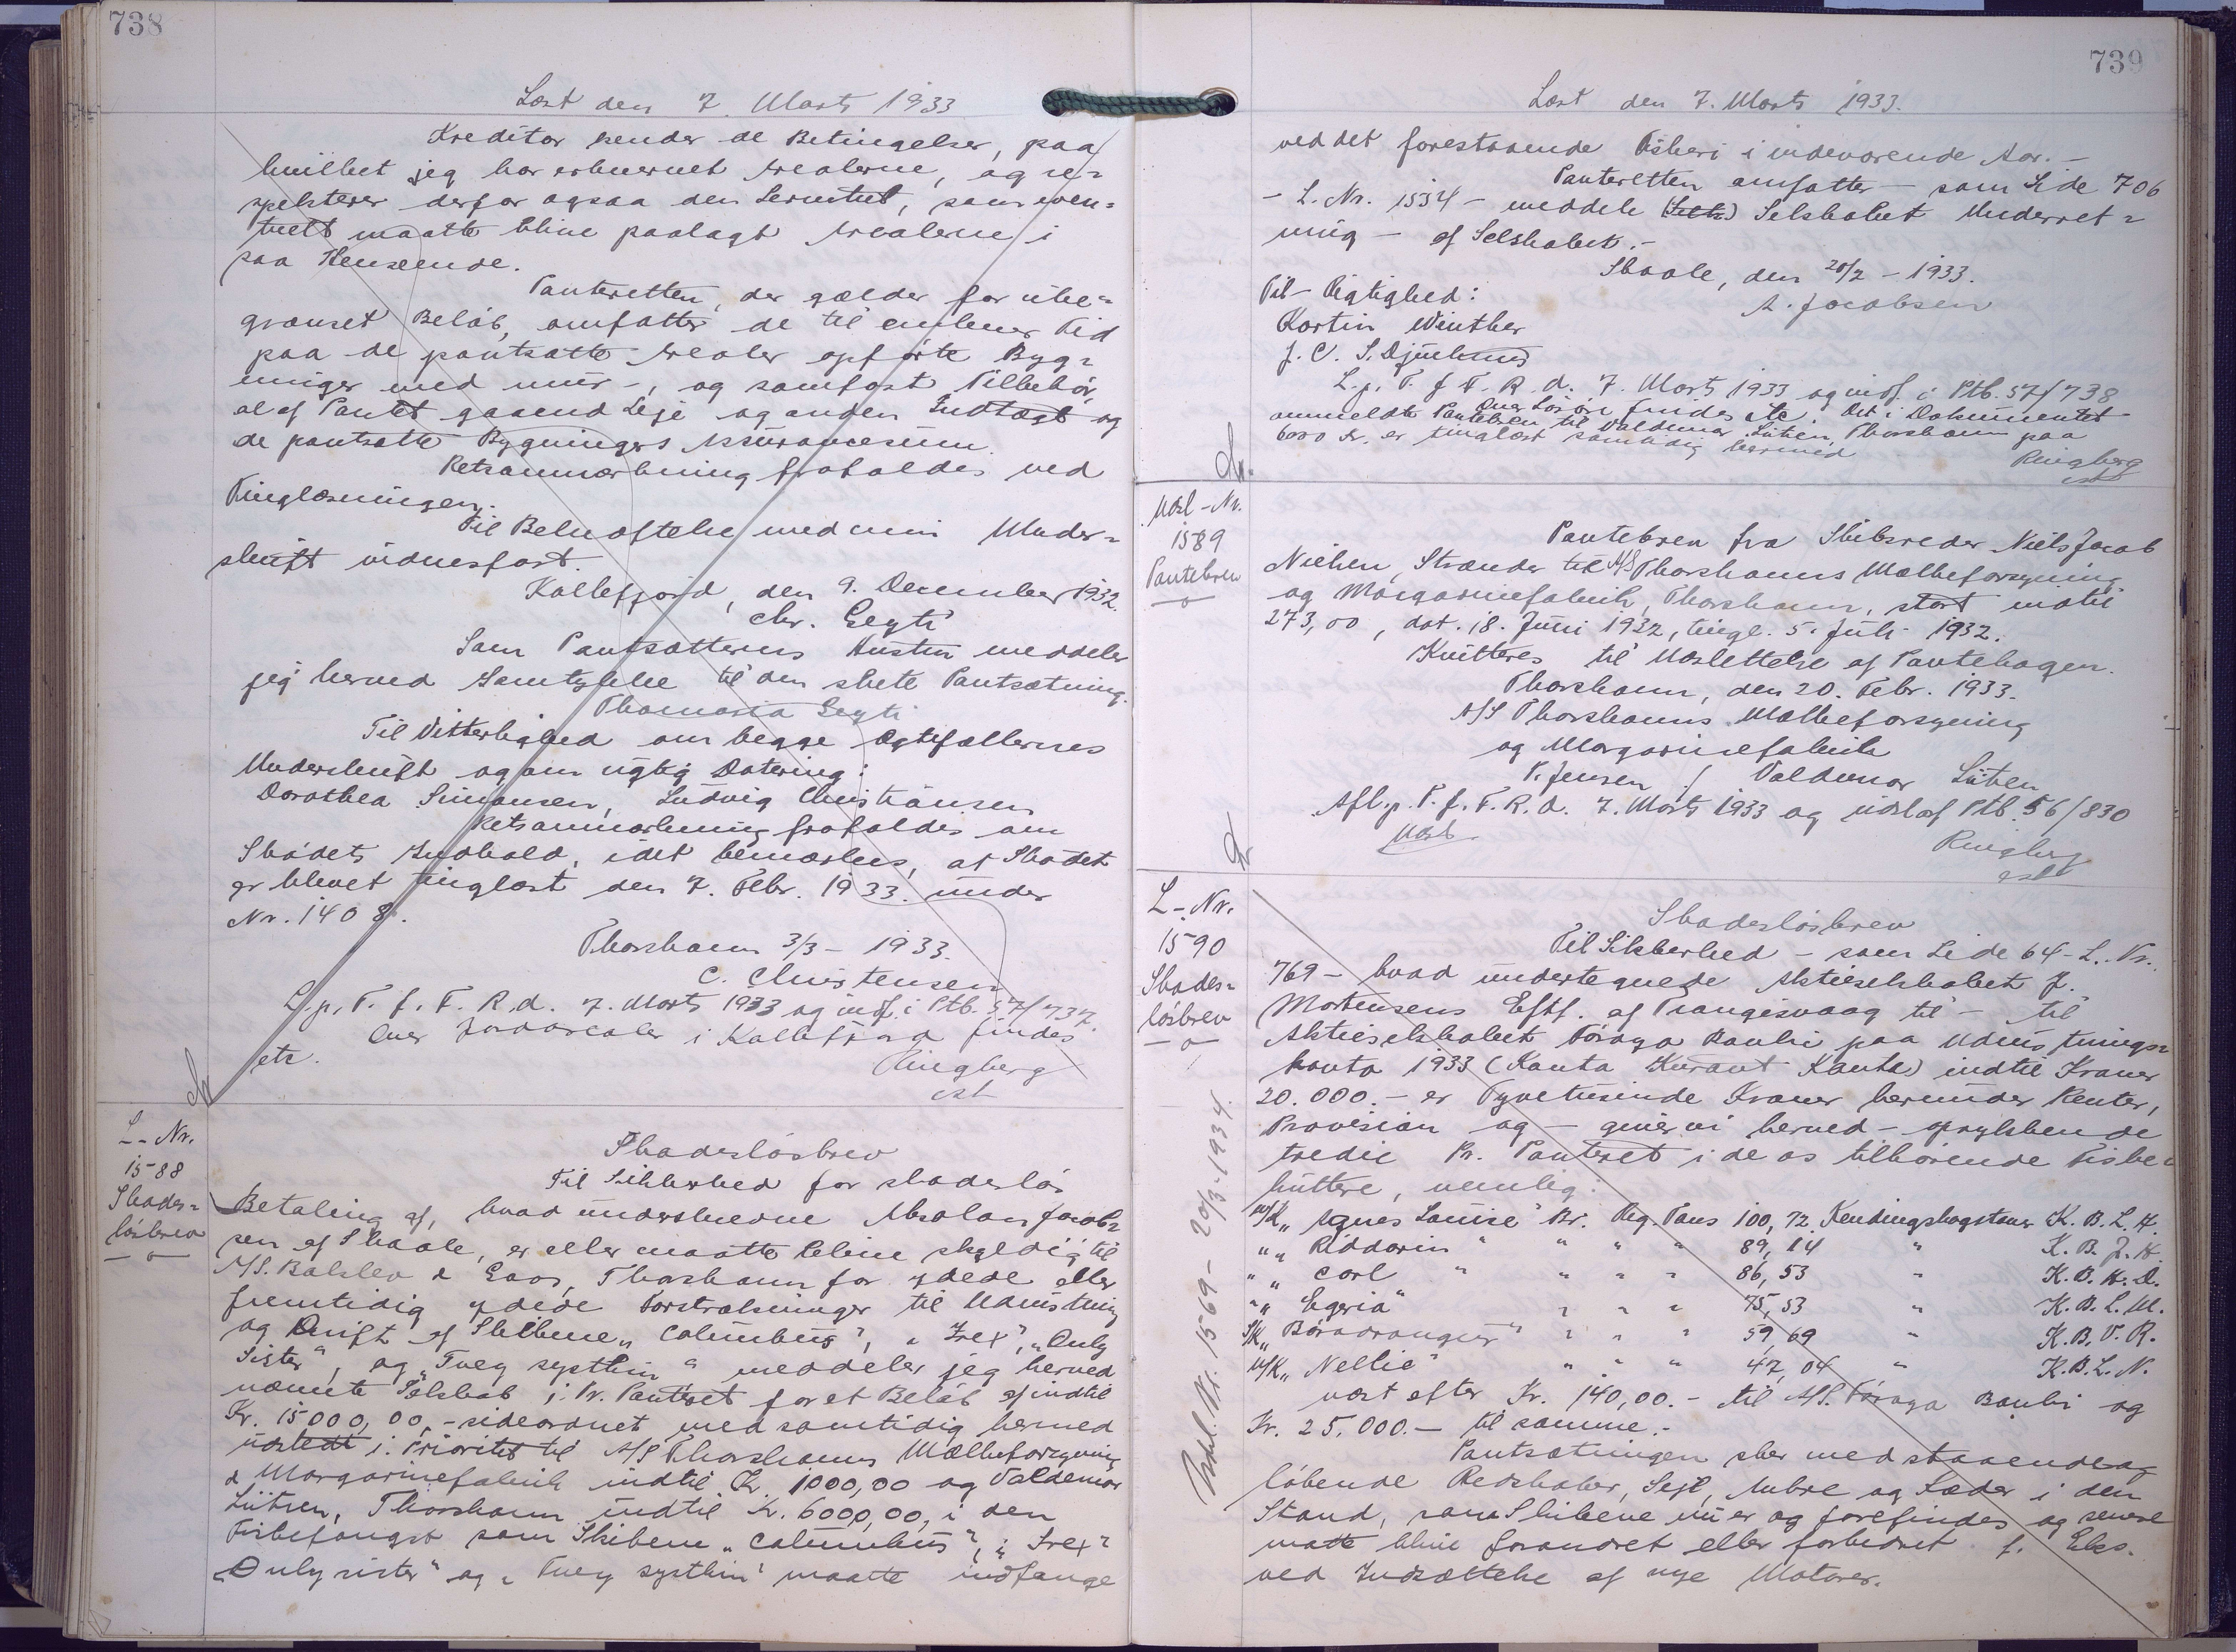 738
Læst den 7. Marts 1933
Kreditor kender de Betingelser, paa
hvilket jeg har erhvervet Arealerne, og re-
spekterer derfor ogsaa den Servitut, som even-
tuelt maatte blive paalagt Arealerne i
saa Henseende.
Panteretten, der gælder for ube-
grænset Beløb, omfatter de til enhver Tid
paa de pantsatte Arealer opførte Byg-
ninger med mur-, og sømfast Tilbehør,
al af Pantet gaaend Leje og anden Indtægt og
de pantsatte Bygningers Assurancesum.
Retsanmærkning frafaldes ved
Tinglæsningen.
Til Bekræftelse med min Under-
skrift vidnesfast.
Kollefjord, den 9. December 1932.
Chr. Eegti
Som Pantsætterens Hustru meddeler
jeg herved Samtykke til den skete Pantsætning.
Thomasia Eegti
Til Vitterlighed om begge Ægtefællernes
Underskrift og om rigtig Datering:
Dorothea Simonsen, Ludvig Christiansen
Retsanmærkning frafaldes om
Skødets Indhold, idet bemærkes, at Skødet
er blevet tinglæst den 7. Febr. 1933 under
Nr. 1408.
Thorshavn 3/3 - 1933.
C. Christensen
L. p. T. f. F. R. d. 7. Marts 1933 og indf. i Ptb. 57/737.
Over Jordarealer i Kollefjord findes
etc.
Ringberg
cst
L-Nr.
1588
Skades-
løsbrev
Skadesløsbrev
Til Sikkerhed for skadesløs
Betaling af, hvad underskrevne Absolon Jacob-
sen af Skaale, er eller maatte blive skyldig til
A/S. Balslev & Co, Thorshavn for ydede eller
fremtidig ydede Forstrækninger til Udrustning
og Drift af Skibene „Columbus", „Irex", „Only
Sister", og „Tvey systkin" meddeler jeg herved
nævnte Selskab, i Pr. Panteret for et Beløb af indtil
Kr. 15000,00,- sideordnet med samtidig herved
udstedt i. Prioritet til A/S Thorshavns Mælkeforsyning
& Margarinefabrik indtil Kr. 1000,00 og Valdemar
Lützen, Thorshavn indtil Kr. 6000,00, i den
Fiskefangst som Skibene „Columbus", „Irex"
„Only sister" og „Tvey systkin" maatte indfange
739
Læst den 7. Marts 1933.
ved det forestaaende Fiskeri i indeværende Aar. -
Panteretten omfatter - som Side 706
- L. Nr. 1534 - meddele Selskabet Underret-
ning - af Selskabet. -
Skaale, den 28/2 - 1933.
Til Rigtighed:
A. Jacobsen
Martin Winther
J. C. S. Djurhuus
L. p. T. f. F. R. d. 7. Marts 1933 og indf. i Ptb. 57/738
Over Løsøre findes etc. Det i Dokumentet
anmeldte Pantebrev til Valdemar Lützen, Thorshavn paa
6000 Kr. er tinglæst samtidig hermed
Ringberg
cst
Udsl-Nr.
1589
Pantebrev
Pantebrev fra Skibsreder Niels Jacob
Nielsen, Strænder til A/S Thorshavns Mælkeforsyning
og Margarinefabrik, Thorshavn, stort indtil
273,00, dat. 18. Juni 1932, tingl. 5. Juli 1932.
Kvitteres til Udslettelse af Pantebogen.
Thorshavn, den 20. Febr. 1933.
A/S Thorshavns Mælkeforsyning
og Margarinefabrik
P. Jensen / Valdemar Lützen
Afl. p. T. f. F. R. d. 7. Marts 1933 og udsl. af Ptb. 56/830
Udsl.
Ringberg
cst
L-Nr.
1590
Skades-
løsbrev
Udsl. Nr. 1569 - 20/3-1934.
Skadesløsbrev
Til Sikkerhed - som Side 64 - L. Nr.
769 - hvad undertegnede Aktieselskabet J.
Mortensens Eftf. af Trangisvaag til - til
Aktieselskabet Føroya Banki paa Udrustnings-
konto 1933 (Konto Kurant Konto) indtil Kroner
20.000.- er Tyvetusinde Kroner herunder Renter,
Provision og - giver vi herved - oprykkende
tredie Pr. Panteret i de os tilhørende Fiske-
kuttere, nemlig:
M/K „Agnes Louise" Br. Reg. Tons 100,72 Kendingsbogstaver K. B. L. H.
„ „ Riddarin " " " " 89,14 " K. B. J. H.
„ „ Carl " " " " 86,53 " K. B. H. D.
„ „ Egeria" " " " 75,53 " K. B. L. M.
S/K „Borodrangur" " " " 59,69 " K. B. V. R.
M/K „ Nellie" " " " 47,04 " K. B. L. N.
næst efter Kr. 140,00.- til A/S. Føroya Banki og
Kr. 25.000.- til samme.-
Pantsætningen sker med staaende og
løbende Redskaber, Sejl, Ankre og Kæder i den
Stand, som Skibene nu er og forefindes og senere
maatte blive forandret eller forbedret f. Eks.
ved Indsættelse af nye Motorer.